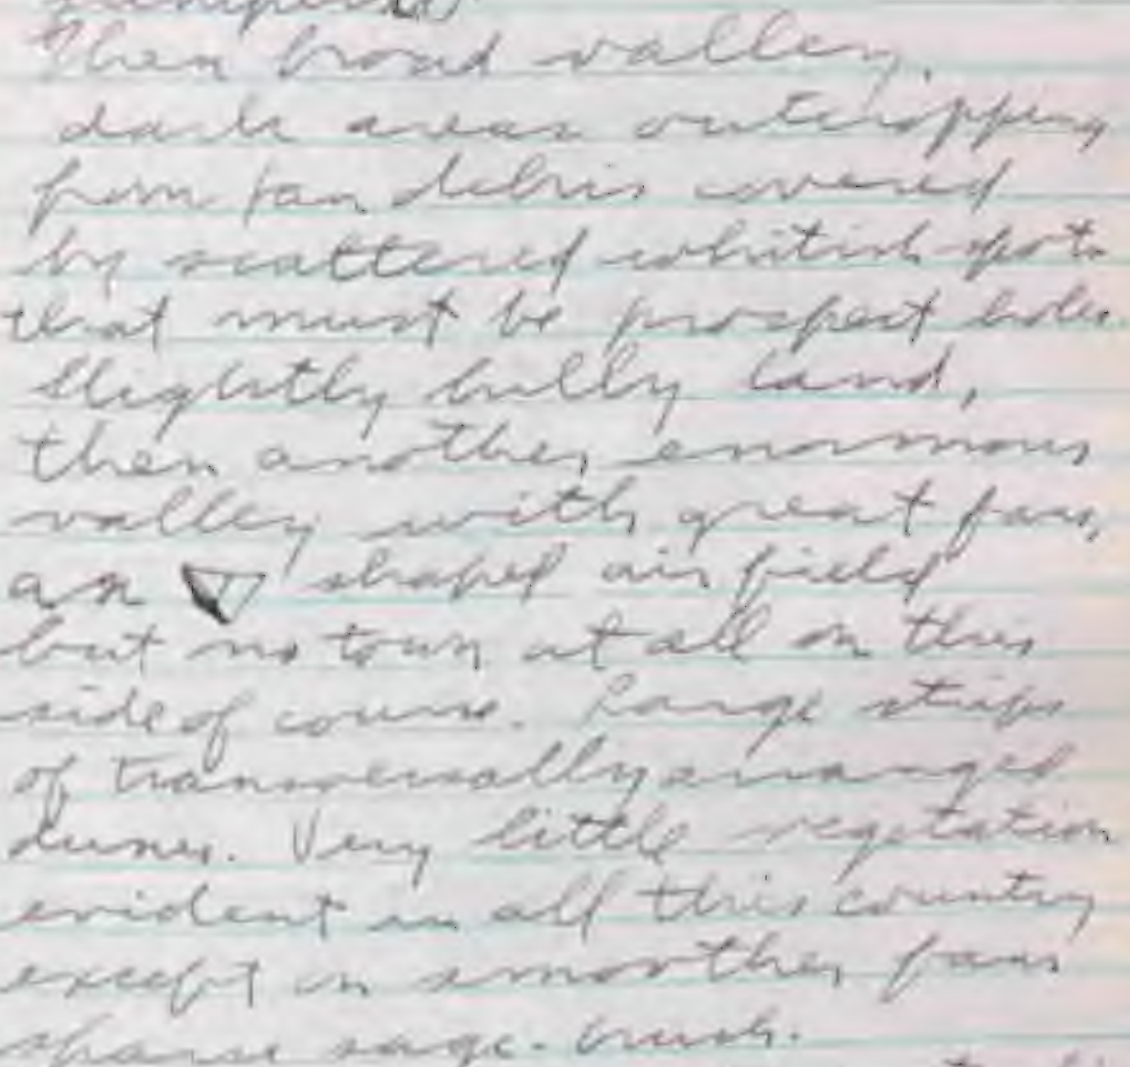 Then broad valley,
dark areas outcropping
from tan debris covered
by scattered whitish spots
that must be prospect holes.
Slightly hilly land,
then another enormous
valley with great fans,
an shaped air field
but no town at all on this
side of course. Large strips
of transversally arranged
dunes. Very little vegetation
evident in all this country
except in smoother fans
sparse sage-brush.